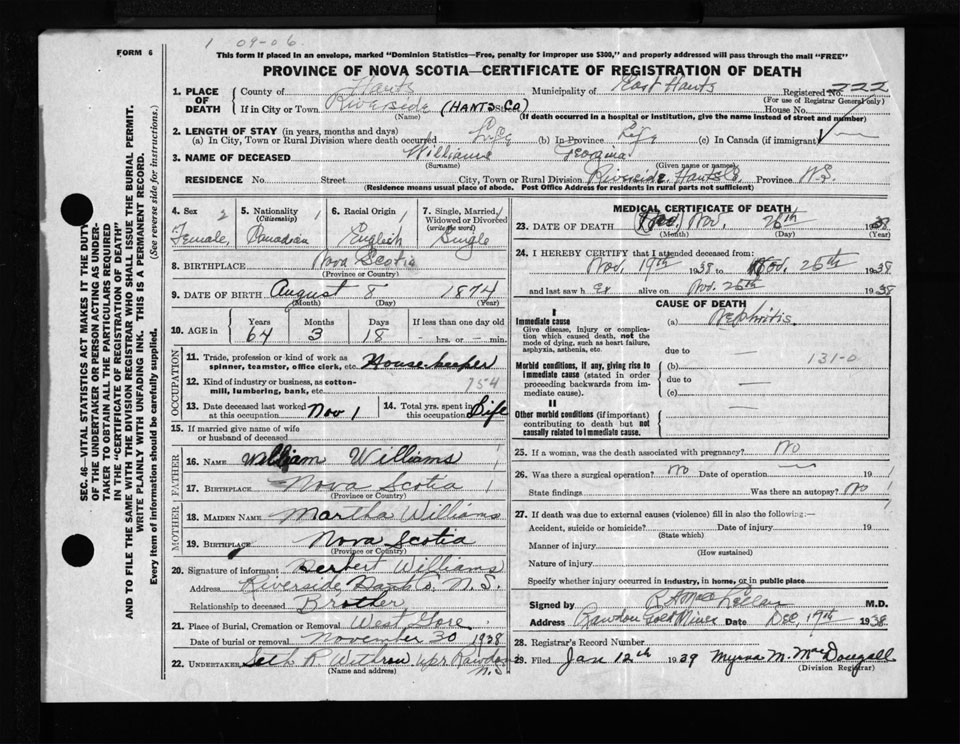 1 09-06
FORM 6
This form if placed in an envelope, marked "Dominion Statistics—Free, penalty for improper use $300," and properly addressed will pass through the mail "FREE"
PROVINCE OF NOVA SCOTIA—CERTIFICATE OF REGISTRATION OF DEATH
1. PLACE OF DEATH County of Hants Municipality of East Hants Registered No. 222
(For use of Registrar General only)
If in City or Town Riverside (HANTS CO) Street House No.
(Name) (If death occurred in a hospital or institution, give the name instead of street and number)
2. LENGTH OF STAY (in years, months and days)
(a) In City, Town or Rural Division where death occurred Life (b) In Province Life (c) In Canada (if immigrant) —
3. NAME OF DECEASED Williams Georgina
(Surname) (Given name or names)
RESIDENCE No. Street City, Town or Rural Division Riverside, Hants Co. Province N.S.
(Residence means usual place of abode. Post Office Address for residents in rural parts not sufficient)
4. Sex 2 5. Nationality 1 6. Racial Origin 1 7. Single, Married, 1
(Citizenship) Widowed or Divorced
(write the word)
Female, Canadian English Single
8. BIRTHPLACE Nova Scotia
(Province or Country)
9. DATE OF BIRTH August 8 1874
(Month) (Day) (Year)
10. AGE in Years Months Days If less than one day old
64 3 18 — hrs. or — min.
OCCUPATION
11. Trade, profession or kind of work as
spinner, teamster, office clerk, etc. House-keeper
12. Kind of industry or business, as cotton- 754
mill, lumbering, bank, etc.
13. Date deceased last worked at this occupation Nov 1 14. Total yrs. spent in this occupation Life
15. If married give name of wife
or husband of deceased
FATHER
16. NAME William Williams 1
17. BIRTHPLACE Nova Scotia 1
(Province or Country)
MOTHER
18. MAIDEN NAME Martha Williams
19. BIRTHPLACE Nova Scotia
(Province or Country)
20. Signature of informant Herbert Williams
Address Riverside, Hants, N.S.
Relationship to deceased Brother
21. Place of Burial, Cremation or Removal West Gore
Date of burial or removal November 30 1938
22. UNDERTAKER Seth R. Withrow Upr Rawdon
(Name and address) N.S.
MEDICAL CERTIFICATE OF DEATH
23. DATE OF DEATH Nov. 26th 1938
(Month) (Day) (Year)
24. I HEREBY CERTIFY that I attended deceased from
Nov. 19th 1938 to Nov. 26th 1938
and last saw h er alive on Nov. 26th 1938
CAUSE OF DEATH
I
Immediate cause (a) Nephritis.
Give disease, injury or complication which caused death, not the mode of dying, such as heart failure, asphyxia, asthenia, etc.
due to —
Morbid conditions, if any, giving rise to immediate cause (stated in order proceeding backwards from immediate cause).
(b) 131-0
due to —
(c) —
II
Other morbid conditions (if important) contributing to death but not causally related to immediate cause.
25. If a woman, was the death associated with pregnancy? No
26. Was there a surgical operation? No Date of operation — 19
State findings Was there an autopsy? No
27. If death was due to external causes (violence) fill in also the following:—
Accident, suicide or homicide? Date of injury 19
(State which)
Manner of injury
(How sustained)
Nature of injury
Specify whether injury occurred in industry, in home, or in public place
Signed by M.D.
Address Rawdon Gold Mines Date Dec, 19th 1938
28. Registrar's Record Number
29. Filed Jan 12th 1939 Myrna M. MacDougall
(Division Registrar)
SEC. 46—VITAL STATISTICS ACT MAKES IT THE DUTY
OF THE UNDERTAKER OR PERSON ACTING AS UNDER-
TAKER TO OBTAIN ALL THE PARTICULARS REQUIRED
IN THE "CERTIFICATE OF REGISTRATION OF DEATH"
AND TO FILE THE SAME WITH THE DIVISION REGISTRAR WHO SHALL ISSUE THE BURIAL PERMIT.
WRITE PLAINLY WITH UNFADING INK. THIS IS A PERMANENT RECORD.
Every item of information should be carefully supplied. (See reverse side for instructions.)